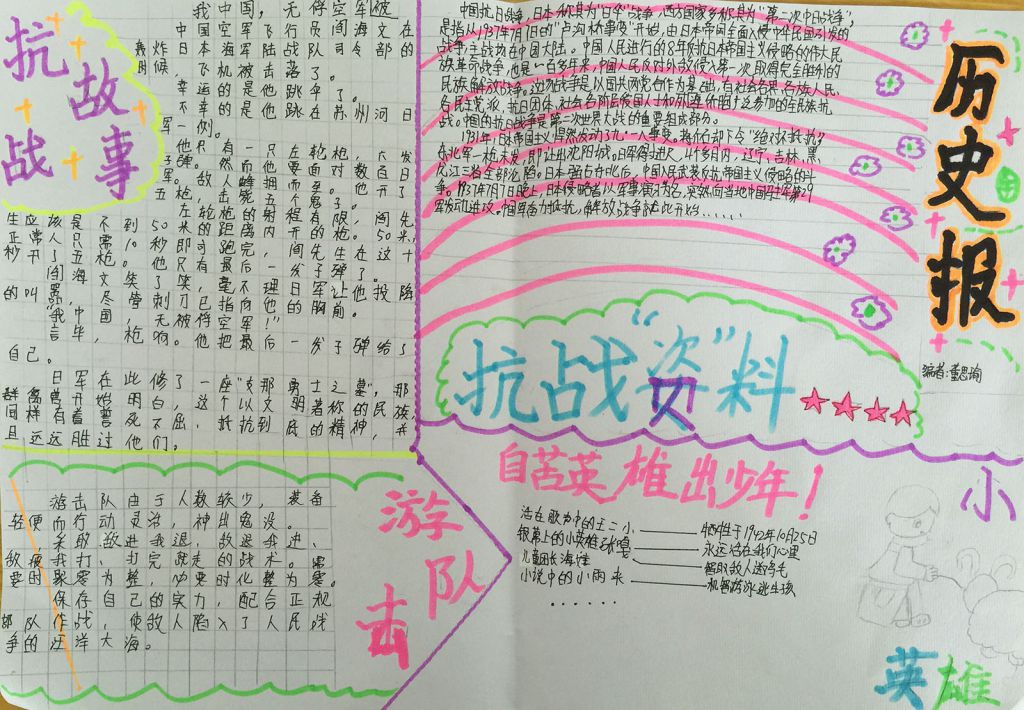 抗战故事
我中国，无俘空军被
中国空军飞行员阎海文在
轰炸日本海军陆战队司令部的
时候，飞机被击落了。
幸运的是他跳伞了。
不幸的是他跳在苏州河日
军一侧。
他只有一只左轮枪，六发
子弹。然而他要面对数百日
军。敌人蜂拥而至。他开了
五枪，击毙五个鬼子。
左轮枪的射程有限，阎先
生应该是不到50米的距离内开的枪。50米，
正常人只需10秒即可跑完，阎先生在这十
秒开了五枪。他只有最后一发子弹了。
阎海文笑了笑，毫不理日军让他投降
的叫嚣，尽管刺刀已指向他的胸前。
“我中国，无被俘空军！”
言毕，枪响。他把最后一发子弹给了
自己。
日军在此修了一座“支那勇士之墓”，那
群禽兽开始明白，这个以文明著称的民族，
同样有着誓死不屈，抵抗到民的精神，并
且远远胜过他们。
中国抗日战争，日本称其为“日华”战争，西方国家多称其为“第二次中日战争”，
是指从1937年7月7日的“卢沟桥事变”开始，由日本帝国全面入侵中华民国引发的
战争，主战场在中国大陆。中国人民进行的8年抗日本帝国主义侵略的伟大民
族革命战争，也是一百多年来，中国人民反对外敌侵入第一次取得完全胜利的
民族解放战争。这次战争是以国共两党合作为基础，有社会各界、各族人民、
各民主党派、抗日团体、社会各阶层爱国人士和海外侨胞广泛参加的全民族抗
战。中国的抗日战争是第二次世界大战的重要组成部分。
1931年日本帝国主义悍然发动了九·一八事变。蒋介石却下令“绝对不抵抗”，
东北军一枪未发，即让出沈阳城。日军得寸进尺，4个多月内，辽宁、吉林、黑
龙江三省全部沦陷。日本强占东北后，中国人民武装反抗帝国主义侵略的斗
争。1937年7月7日晚上，日本侵略者以军事演习为名，突然向当地中国驻军第29
军发动进攻。中国军奋力抵抗，解放战争在此开始……
历史报
编者：董思询
抗战“资”料
游击队
游击队由于人数较少，装备
轻便而行动灵活，神出鬼没。
采取敌进我退，敌退我进，
敌疲我打，打完就走的战术。需
要时聚零为整，必要时化整为零。
保存自己的实力，配合正规
部队作战，使敌人陷入了人民战
争的汪洋大海。
自苦英雄出少年！
活在歌力中的王二小————牺牲于1942年10月25日
银幕上的小英雄张嘎————永远活在我们心里
儿童团长海娃————智取敌人送鸡毛
小说中的小雨来————机智游泳逃生孩
......
小
英雄